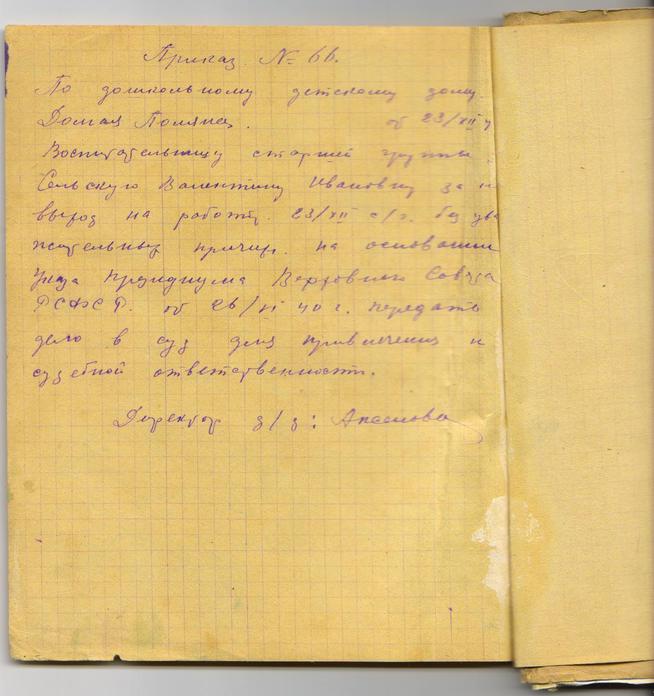 Приказ № 66.
По дошкольному детскому дому
Домая Поляна. от 23/XII
Воспитательницу старшей группы
Сельскую Валентину Ивановну за н
выход на работу. 23/XII с/г. без ува
жительных причин. на основании
Указа Президиума Верховного Совета
РСФСР. от 26/VI 40 г. передать
дело в суд для привлечения к
судебной ответственности.
Директор д/д: